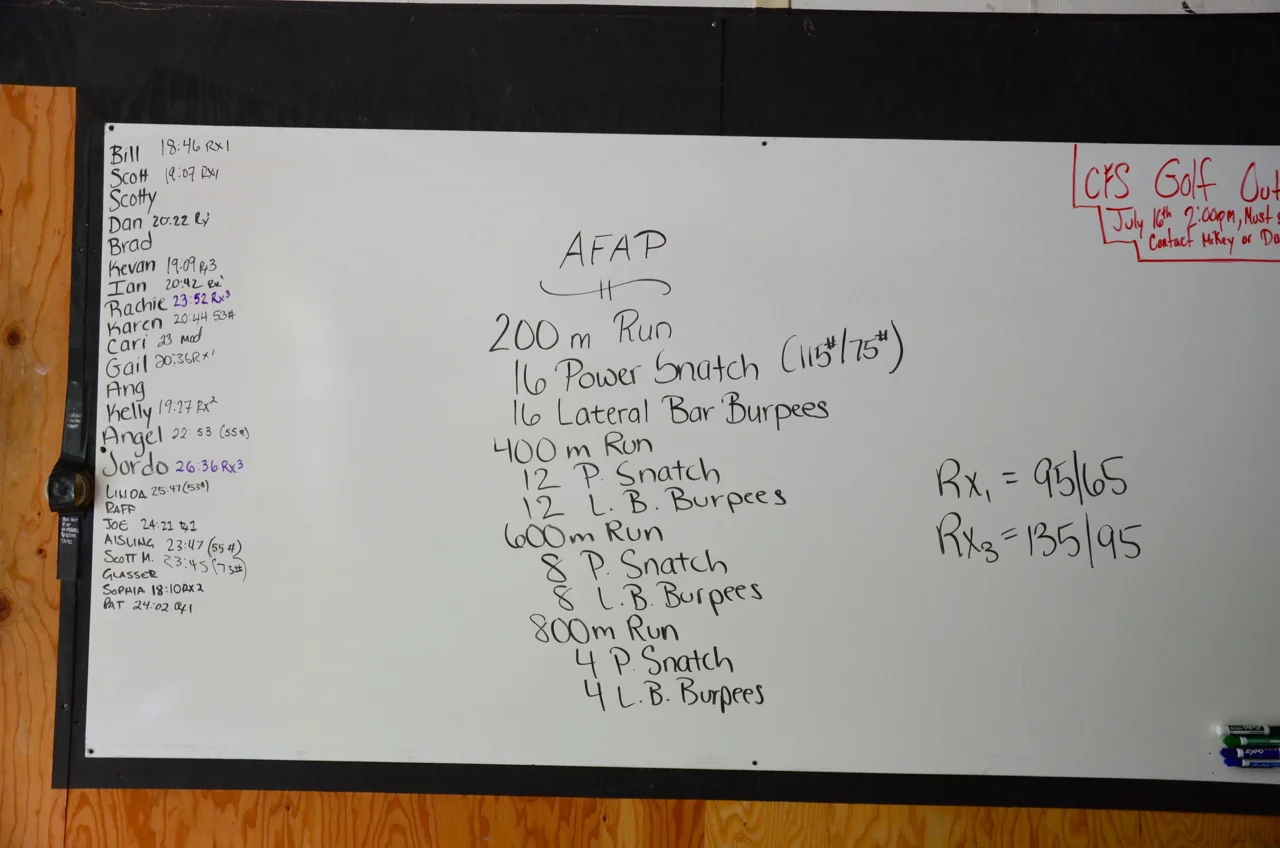 Bill 18:46 Rx1
Scott 19:07 Rx1
Scotty
Dan 20:22
Brad
Kevan 19:09 Rx3
Ian 20:42 Rx1
Rachie 23:52 Rx3
Karen 20:44 53#
Cari 23 Mod
Gail 20:36 Rx1
Ang
Kelly 19:27 Rx2
Angel 22:53 (55#)
Jordo 26:36 Rx3
LINDA 25:47 (53#)
RAFF
JOE 24:21 Rx1
AISLING 23:47 (55#)
SCOTT M. 23:45 (75#)
GLASSER
SOPHIA 18:10 Rx2
PAT 24:02 Rx1
AFAP
200 m Run
16 Power Snatch (115#/75#)
16 Lateral Bar Burpees
400 m Run
12 P. Snatch
12 L.B. Burpees
600m Run
8 P. Snatch
8 L.B. Burpees
800m Run
4 P. Snatch
4 L.B. Burpees
Rx1 = 95/65
Rx3 = 135/95
CFS Golf Out
July 16th 2:00pm, Must
Contact Mikey or Da
EXPO